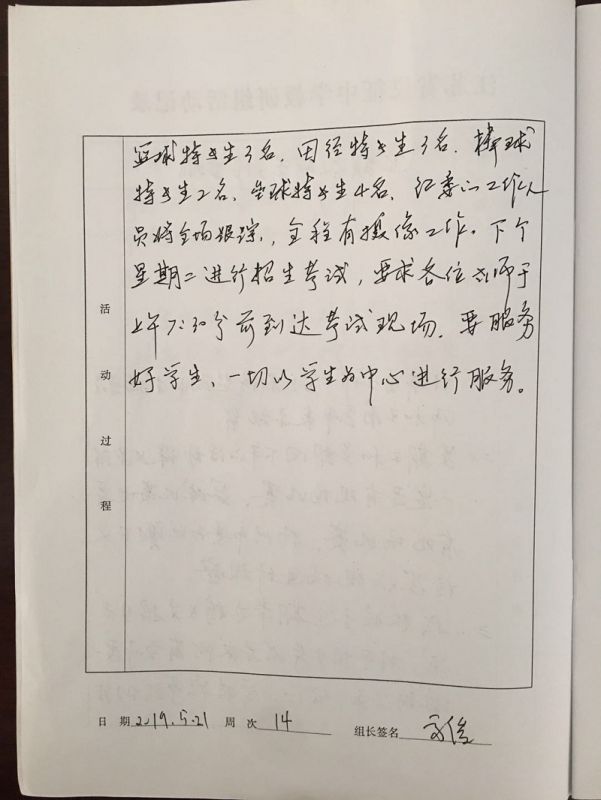 篮球特长生3名、田径特长生3名、棒球
特长生2名、垒球特长生4名、纪委的工作人
员将全场跟踪,全程有摄像工作。下个
星期二进行招生考试,要求各位老师于
上午7:30分前到达考试现场,要服务
好学生、一切以学生为中心进行服务。
活动过程
日 期 2019.5.21 周 次 14 组长签名